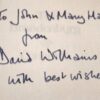 To John & Mary
from
David Williams
with best wishes